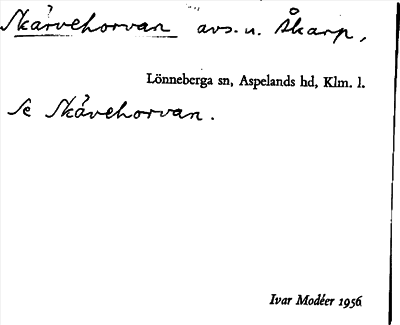 Skárvehorvan avs. u. Åkarp,
Lönneberga sn, Aspelands hd, Klm. l.
Se Skávehorvan.
Ivar Modéer 1956.